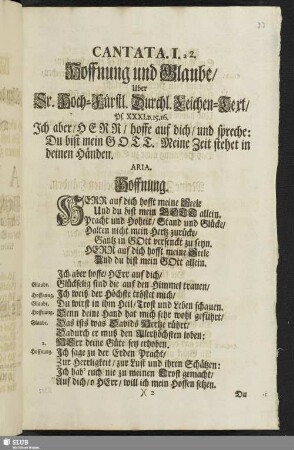 CANTATA. I. à 2.
Hoffnung und Glaube/
Uber
Sr. Hoch-Fürstl. Durchl. Leichen-Text/
Ps. XXXI. v. 15. 16.
Ich aber/ HERR/ hoffe auf dich/ und spreche:
Du bist mein GOTT. Meine Zeit stehet in
deinen Händen.
ARIA.
Hoffnung.
HERR auf dich hofft meine Seele
Und du bist mein GOTT allein.
Pracht und Hoheit/ Stand und Glücke/
Halten nicht mein Hertz zurücke/
Gantz in GOtt versenckt zu seyn.
HERR auf dich hofft meine Seele
Und du bist mein GOtt allein.
Ich aber hoffe/ HErr auf dich/
Glaube. Glückselig sind die auf den Himmel trauen/
Hoffnung. Ich weiß der Höchste tröstet mich/
Glaube. Du wirst in ihm Heil/ Trost und Leben schauen.
Hoffnung. Denn deine Hand hat mich sehr wohl geführt/
Glaube. Das ists was Davids Hertze rührt/
Dadurch er muß den Allerhöchsten loben:
2. HErr deine Güte sey erhoben.
Hoffnung. Ich sage zu der Erden Pracht/
Zur Herrligkeit/ zur Lust und ihren Schätzen:
Ich hab' euch nie zu meinen Trost gemacht/
Auf dich/ o HErr/ will ich mein Hoffen setzen.
X 2 Du